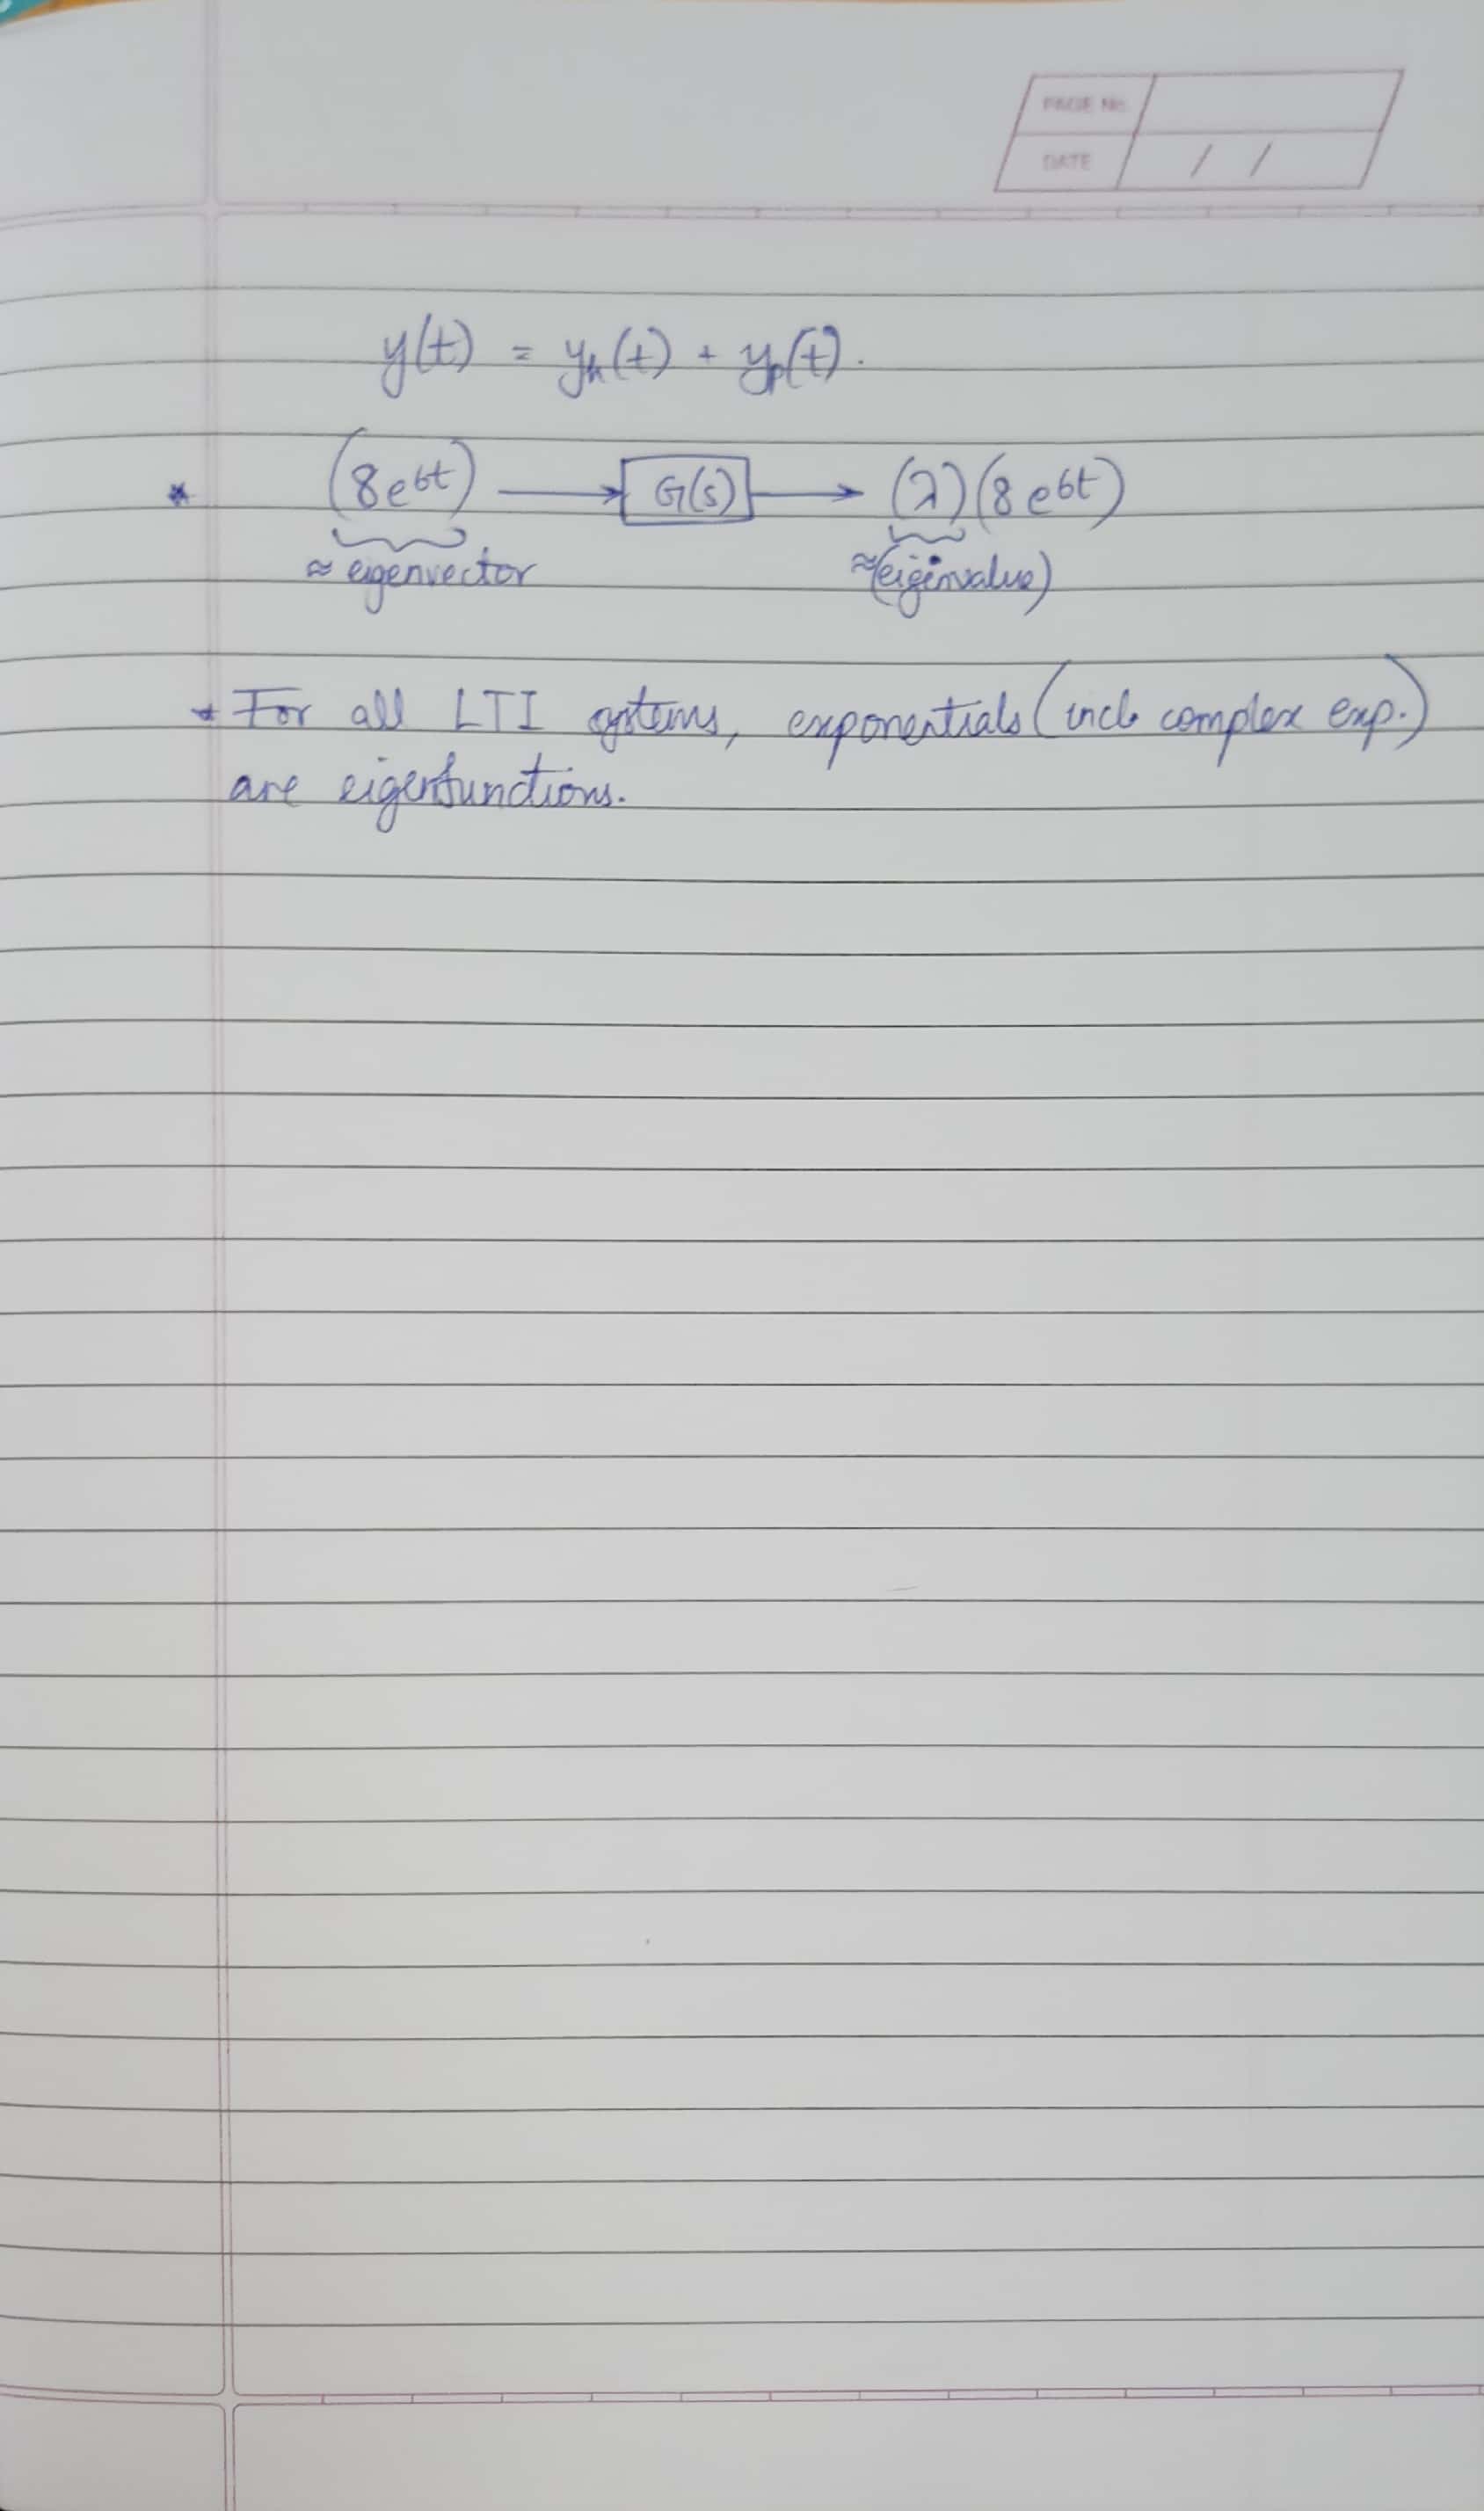 PAGE No.
DATE / /
y(t) = yₕ(t) + yₚ(t).
* (8e⁶ᵗ) → G(s) → (λ)(8e⁶ᵗ)
≈ eigenvector ≈(eigenvalue)
* For all LTI systems, exponentials (incl. complex exp.)
are eigenfunctions.